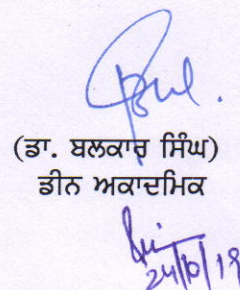 (ਡਾ. ਬਲਕਾਰ ਸਿੰਘ)
ਡੀਨ ਅਕਾਦਮਿਕ
24/10/19